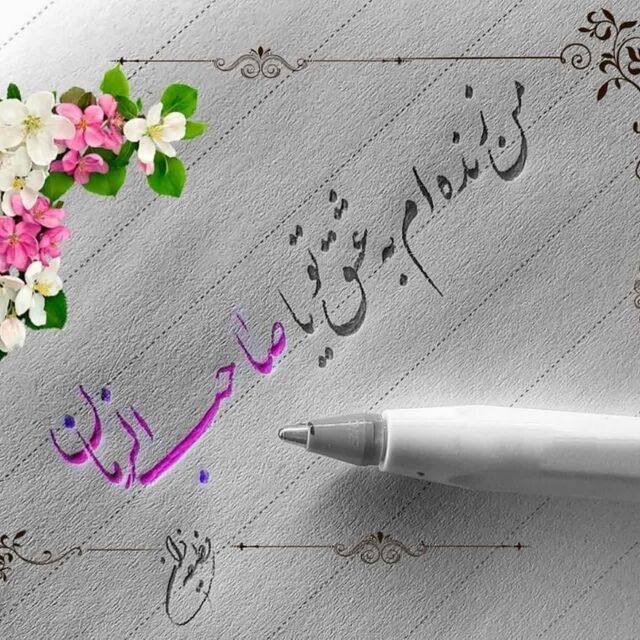 من زنده ام به عشق تو یا صاحب الزمان